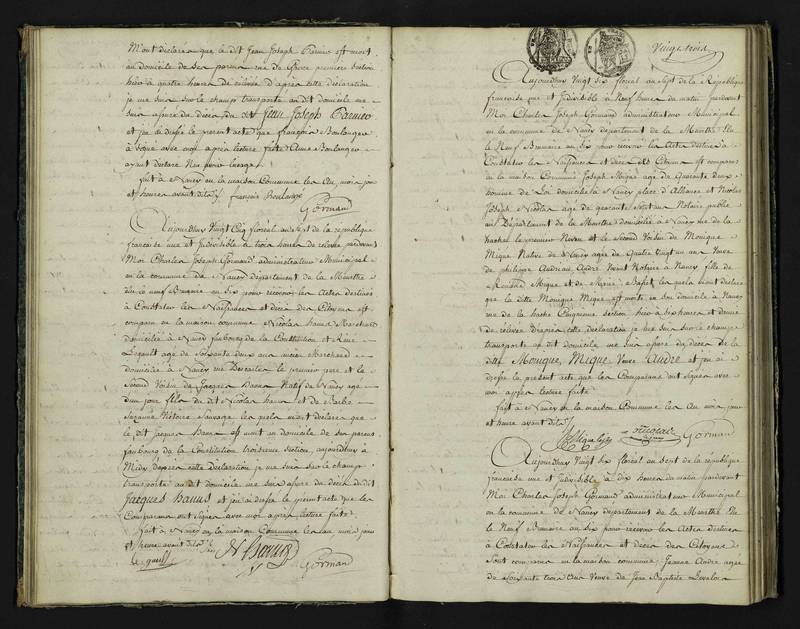 M'ont déclaré que le dit Jean Joseph Parmeo est mort
au domicile de ses parens rue de Grève première Section
hier à quatre heures de relevée d'après cette déclaration
je me suis sur le champ transporté au dit domicile
me suis assuré du décès du dit Jean Joseph Parmeo
et j'ai dressé le présent acte que françois Boulanger
a signé avec moi après lecture faite Anne Boulanger
ayant déclaré Ne savoir
fait à Nancy en la maison Commune les An, mois jour
et heures avant dits françois Boulanger
Gormand
Aujourdhuy Vingt Cinq floréal an sept de la republique
francaise une et Indivisible à trois heures de relevée pardevant
Moi Charles Joseph Gormand administrateur Municipal
en la commune de Nancy departement de la Meurthe
élu le neuf Brumaire an Six pour recevoir les Actes destinés
à Constater les Naissances et décès des Citoyens est
comparu en la maison commune Nicolas hanus Marchand
domicilié à Nancy faubourg de la Constitution et Réné
agé de Soixante deux ans ancien Marchand
domicilié à Nancy rue le premier pere et le
Second Voisin de Jacques hanus Natif de Nancy agé
d'un jour fils du dit Nicolas hanus et de Barbe
Suzanne Victoire Sauvage les quels m'ont déclaré que
le dit Jacques hanus est mort au domicile de ses parens
faubourg de la Constitution troisieme Section, aujourdhuy à
Midy d'après cette Declaration je me suis sur le champ
transporté au dit domicile me suis assuré du décès du dit
Jacques hanus et j'en ai dressé le présent acte que les
Comparans ont Signés avec moi après lecture faite
fait à Nancy en la maison Commune les an mois jour
et heures avant dits
N hanus
Gormand
Vingt trois
Aujourdhuy Vingt Six floréal an sept de la Republique
françoise une et Indivisible à Neuf heures du matin pardevant
Moi Charles Joseph Gormand administrateur Municipal
en la commune de Nancy departement de la Meurthe Elu
le Neuf Brumaire an Six pour recevoir les Actes destinés à
Constater les Naissances et décès des Citoyens est comparu
en la maison Commune Joseph Mique agé de Quarante deux
homme de Loi domicilié à Nancy place d'Alliance et Nicolas
Joseph Nicolas agé de quarante sept ans Notaire public
au Département de la Meurthe domicilié à Nancy rue de la
hache le premier Neveu et le Second Voisin de Monique
Mique Native de Nancy agée de Quatre Vingt un ans Veuve
de philippe André Vivant Notaire à Nancy fille de
Mique et de les quels m'ont déclaré
que la ditte Monique Mique est morte en son domicile à Nancy
rue de la hache Cinquieme Section hier à Six heures et demie
de relevée D'après cette déclaration je me suis sur le champ
transporté au dit domicile me suis assuré du décès de la
ditte Monique Mique Veuve André et j'en ai
dressé le présent acte que les Comparans ont Signés avec
moi après lecture faite
fait à Nancy en la maison Commune les An mois jour
et heures avant dits
Mique
Nicolas
Gormand
Aujourdhuy Vingt Six floréal an sept de la république
françoise une et Indivisible à dix heures du matin pardevant
Moi Charles Joseph Gormand administrateur Municipal
en la commune de Nancy departement de la Meurthe Elu
le Neuf Brumaire an Six pour recevoir les Actes destinés
à Constater les Naissances et décès des Citoyens
Sont comparus en la maison commune Jeanne André agée
de Soixante trois ans Veuve de Jean Baptiste